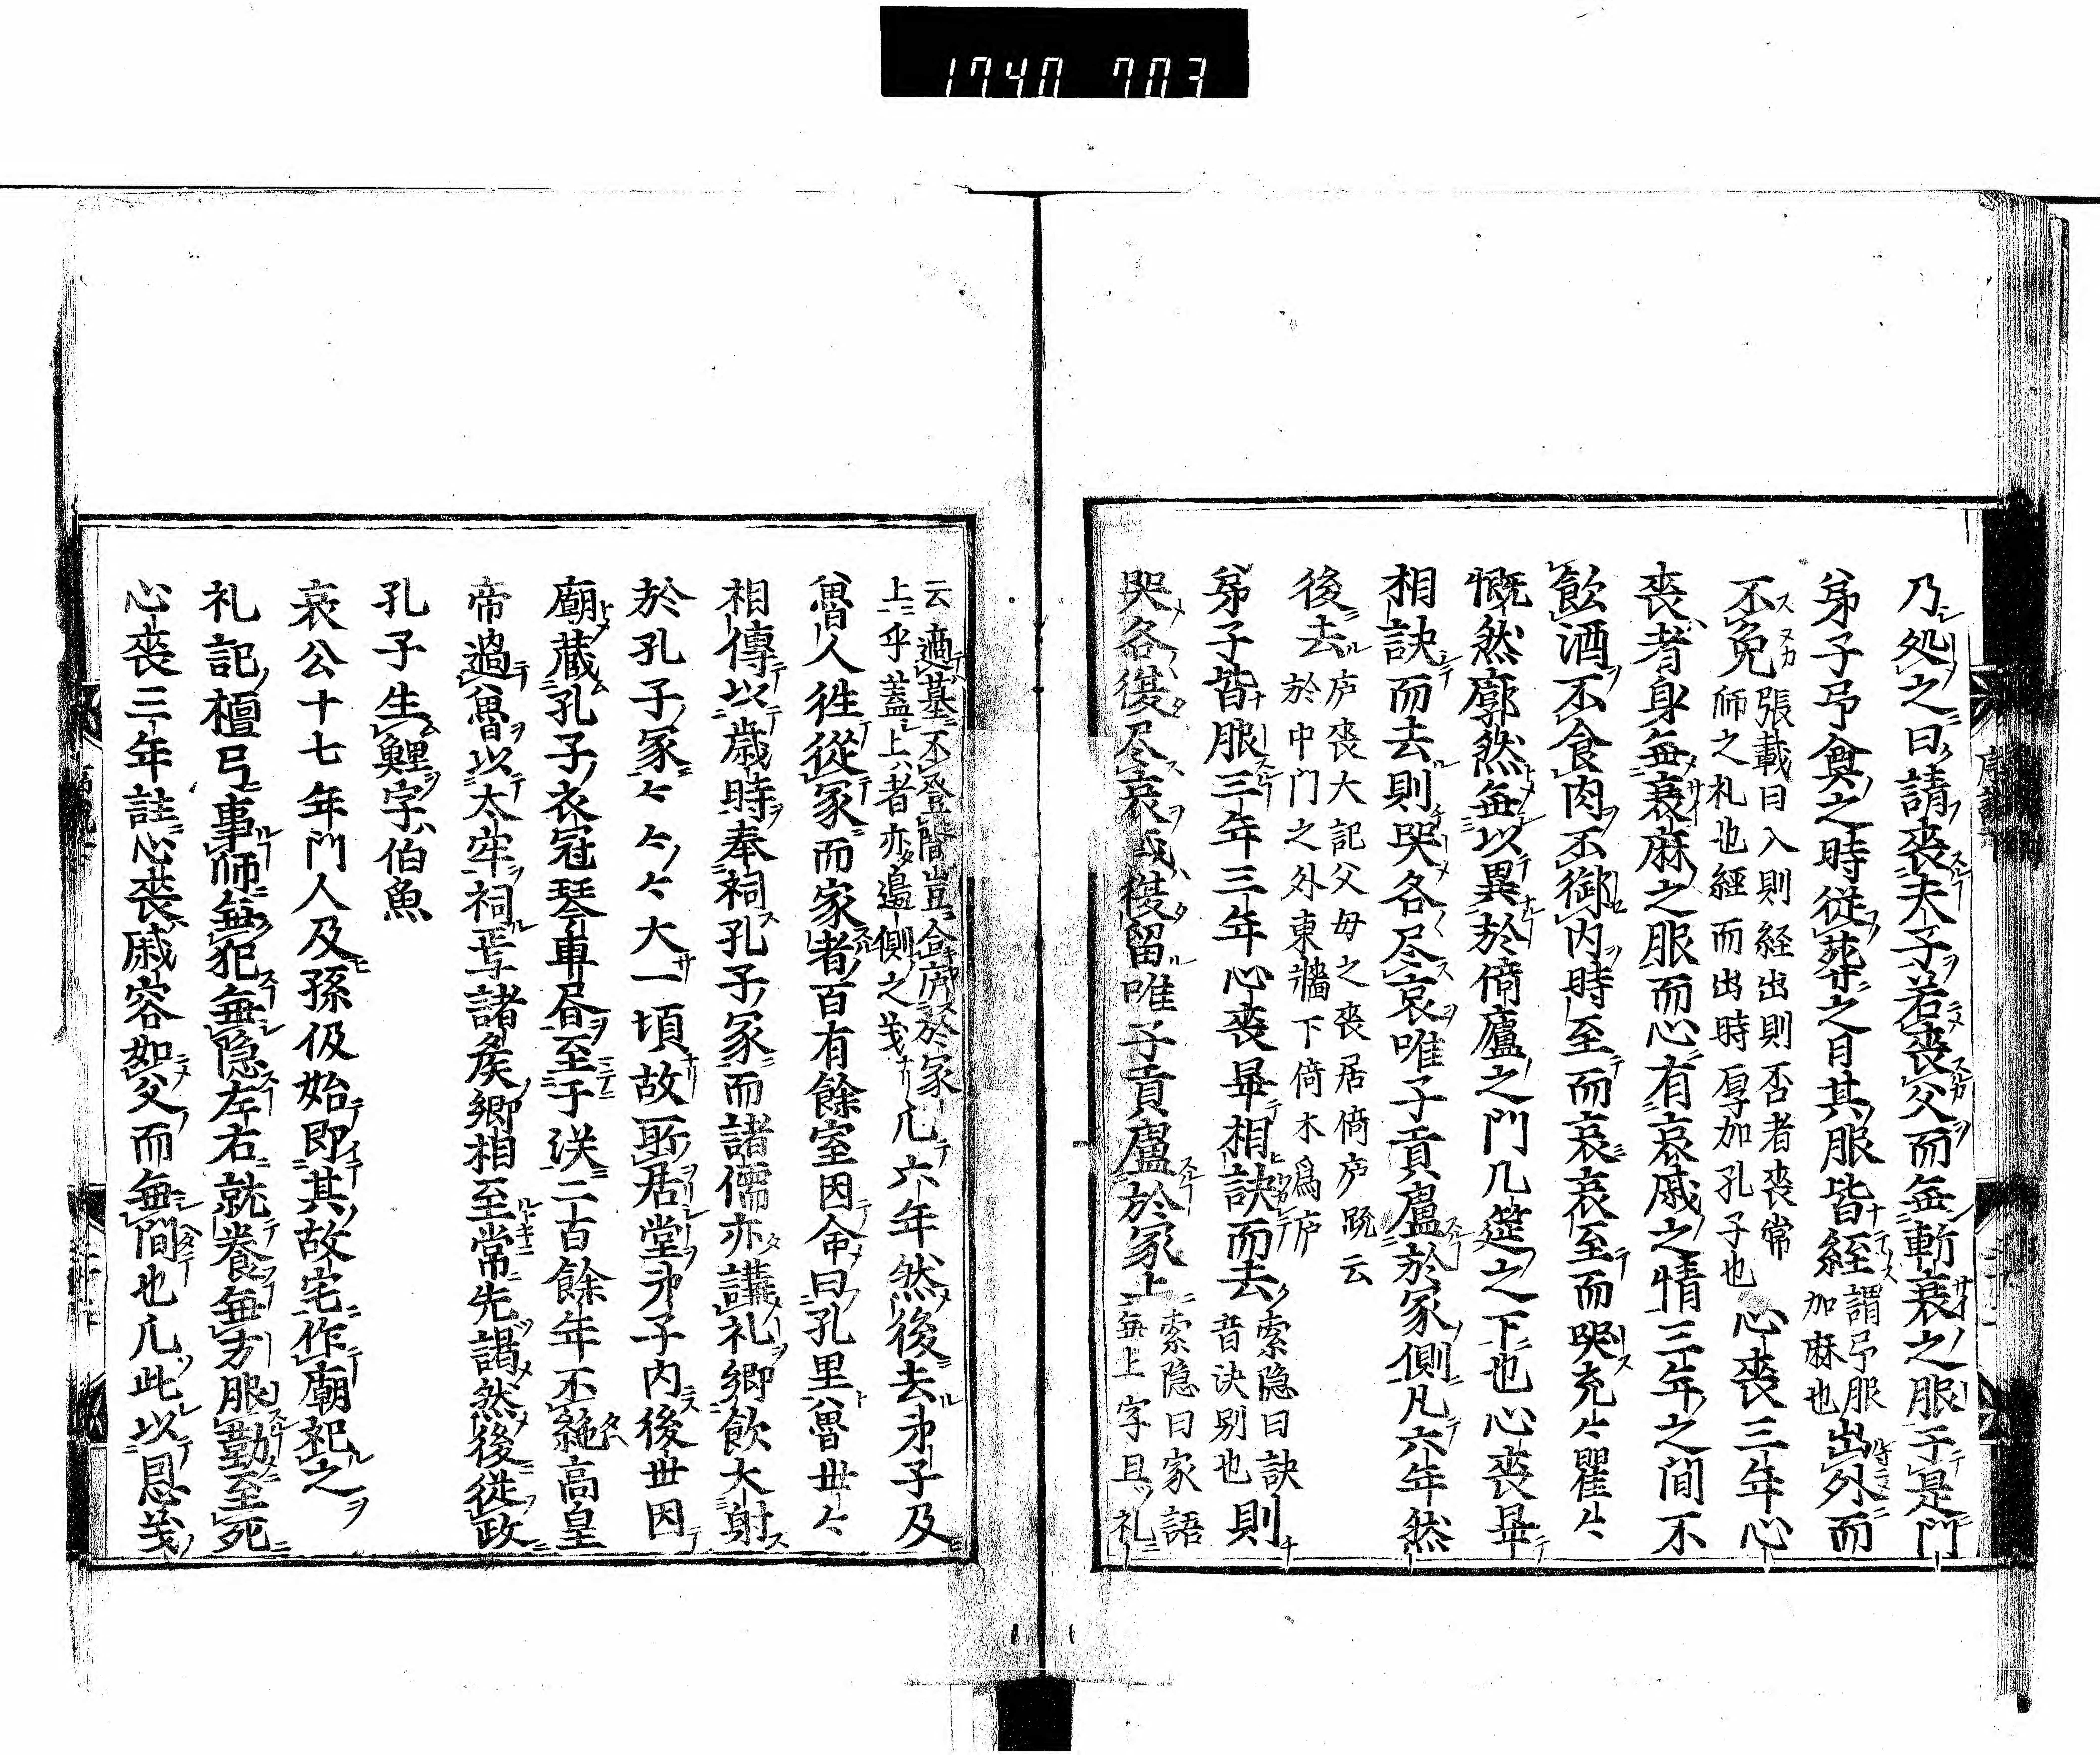 1740 703
乃処之曰請喪夫子若喪父而無斬衰之服於是門
弟子弔奠之時從葬之日其服皆絰
謂弔服
加麻也
出外而
不免
張載曰入則経出則否者喪常
師之礼也經而出時厚加孔子也
心喪三年心
喪者身無衰麻之服而心有哀戚之情三年之間不
飲酒不食肉不御内時至而哀哀至而哭充々瞿々
慨然廓然無以異於倚廬之門几筵之下也心喪畢
相訣而去則哭各尽哀唯子貢廬於冢側凡六年然
後去
庐喪大記父母之喪居倚庐䟽云
於中門之外東牆下倚木爲庐
弟子皆服三年三年心喪畢相訣而去
索隐曰訣
音決别也
則
哭各復尽哀或復留唯子貢廬於冢上
索隐曰家語
無上字且礼
云適墓不登隴豈合庿於冢
上乎蓋上者亦邉側之義
凢六年然後去弟子及
魯人徃從冢而家者百有餘室因命曰孔里魯世々
相傳以歳時奉祠孔子冢而諸儒亦講礼郷飲大射
於孔子冢々々々大一頃故所居堂弟子内後世因
廟蔵孔子衣冠琴車書至于漢二百餘年不絶高皇
帝過魯以太牢祠焉諸矦卿相至常先謁然後從政
孔子生鯉字伯魚
哀公十七年門人及孫伋始即其故宅作廟祀之
礼記檀弓事師無犯無隐左右就養無方服勤至死
心喪三年註心喪戚容如父而無間也凢此以恩義